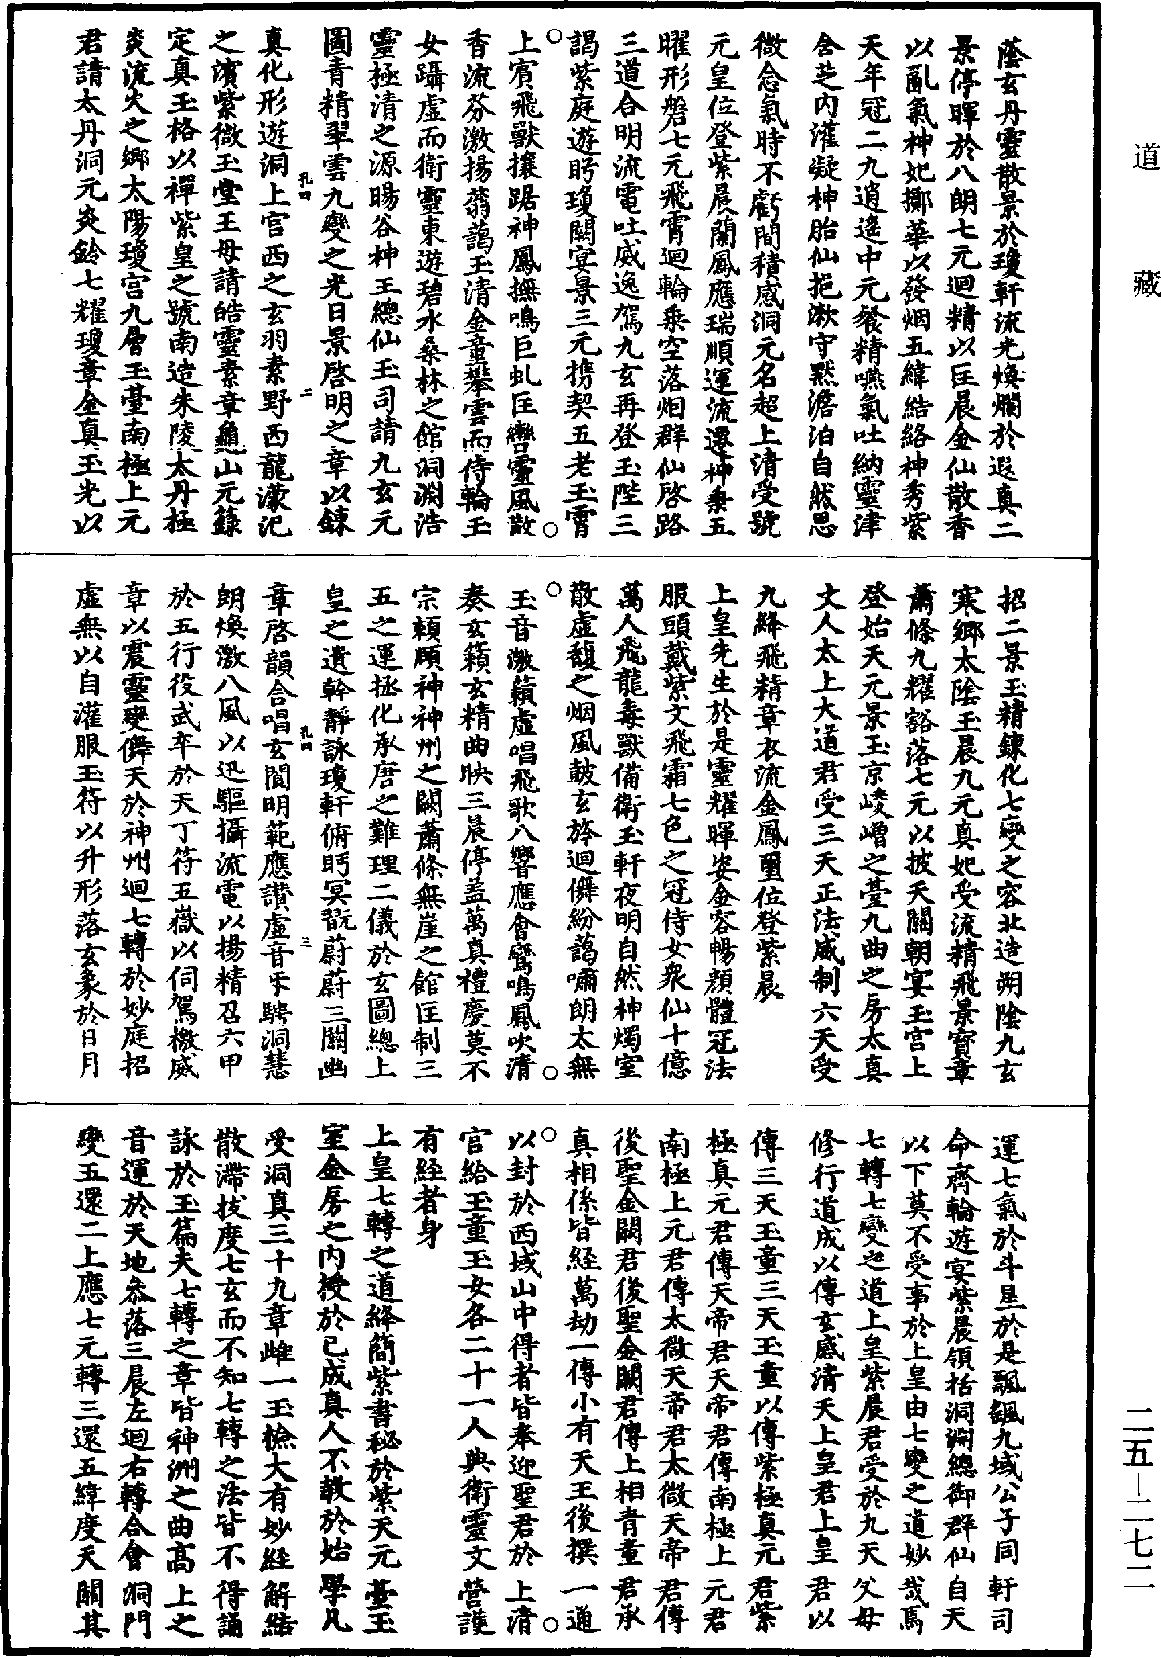 道藏
二五-二七二
蔭玄丹靈散景於瓊軒流光煥爛於遐真二
景停暉於八朗七元迴精以匡晨金仙散香
以亂氣神妃擲華以發烟五緯結絡神秀紫
天年冠二九逍遙中元餐精嚥氣吐納靈津
含芝內灌凝神胎仙挹漱守默澹泊自然思
微念氣時不虧間積感洞元名超上清受號
元皇位登紫晨蘭鳳應瑞順運流還神乘五
曜形磐七元飛霄迴輪乘空落烟群仙啓路
三道合明流電吐威逸駕九玄再登玉陛三
謁紫庭遊眄瓊闕宴景三元携契五老玉霄
上賓飛獸攘踞神鳳撫鳴巨虬匡轡靈風散
香流芬激揚蓊藹玉清金童攀雲而侍輪玉
女躡虛而衛靈東遊碧水桑林之館洞淵浩
靈極清之源暘谷神王總仙玉司請九玄元
圖青精翠雲九變之光日景啓明之章以鍊
孔四
二
真化形遊洞上宮西之玄羽素野西龍濛汜
之濱紫微玉堂王母請皓靈素章龜山元籙
定真玉格以禪紫皇之號南造朱陵太丹極
炎流火之鄉太陽瓊宮九層玉臺南極上元
君請太丹洞元炎鈴七耀瓊章金真玉光以
招二景玉精鍊化七變之容北造朔陰九玄
寒鄉太陰玉晨九元真妃受流精飛景寶章
蕭條九耀豁落七元以披天關朝宴玉宮上
登始天元景玉京崚嶒之臺九曲之房太真
丈人太上大道君受三天正法威制六天受
九絳飛精章衣流金鳳璽位登紫晨
上皇先生於是靈耀暉姿金容暢顏體冠法
服頭戴紫文飛霜七色之冠侍女衆仙十億
萬人飛龍毒獸備衛玉軒夜明自然神燭室
散虛馥之烟風鼓玄旍迴儛紛藹嘯朗太無
玉音激籟虛唱飛歌八響應會鸞鳴鳳吹清
奏玄籟玄精曲映三晨停蓋萬真禮慶莫不
宗賴頤神神州之闕蕭條無崖之館匡制三
五之運拯化承唐之難理二儀於玄圖總上
皇之遺幹靜詠瓊軒俯眄冥翫蔚蔚三關幽
孔四
三
章啓韻合唱玄閣明範應讃虛音乎騁洞慧
朗煥激八風以迅驅攝流電以揚精召六甲
於五行役武卒於天丁符五嶽以伺駕檄威
章以震靈變儛天於神州迴七轉於妙庭招
虛無以自灌服玉符以升形落玄象於日月
運七氣於斗星於是飄飄九域公子同軒司
命齊輪遊宴紫晨領括洞淵總御群仙自天
以下莫不受事於上皇由七變之道妙哉焉
七轉七變之道上皇紫晨君受於九天父母
修行道成以傳玄感清天上皇君上皇君以
傳三天玉童三天玉童以傳紫極真元君紫
極真元君傳天帝君天帝君傳南極上元君
南極上元君傳太微天帝君太微天帝君傳
後聖金闕君後聖金闕君傳上相青童君承
真相係皆經萬劫一傳小有天王後撰一通
以封於西城山中得者皆奉迎聖君於上清
宮給玉童玉女各二十一人典衛靈文營護
有經者身
上皇七轉之道絳簡紫書秘於紫天元臺玉
室金房之內授於已成真人不教於始學凡
受洞真三十九章雌一玉檢大有妙經解結
散滯拔度七玄而不知七轉之法皆不得誦
詠於玉篇夫七轉之章皆神洲之曲高上之
音運於天地叅落三晨左迴右轉合會洞門
變五還二上應七元轉三還五緯度天關其